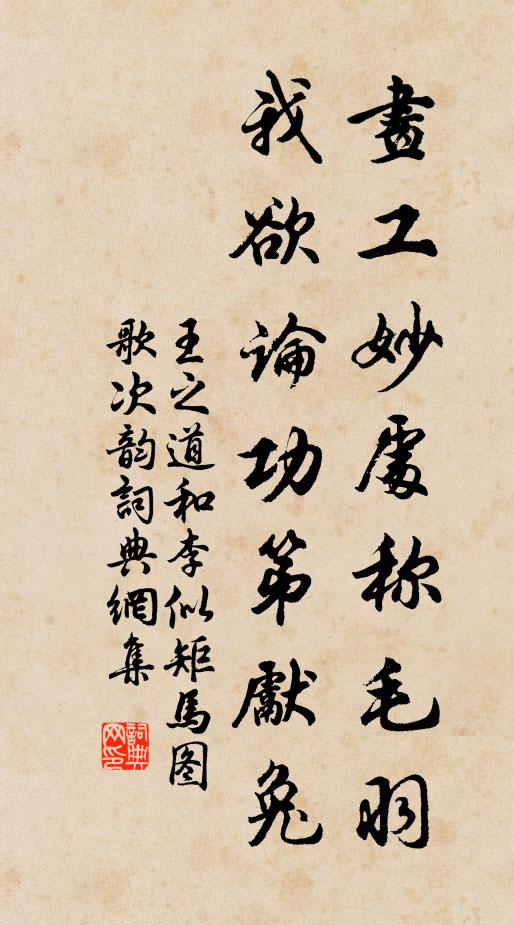 畫工妙處称毛羽
我欲論功第獻兔
王之道和李似矩馬图
歌次韵詞典網集
詞典网印